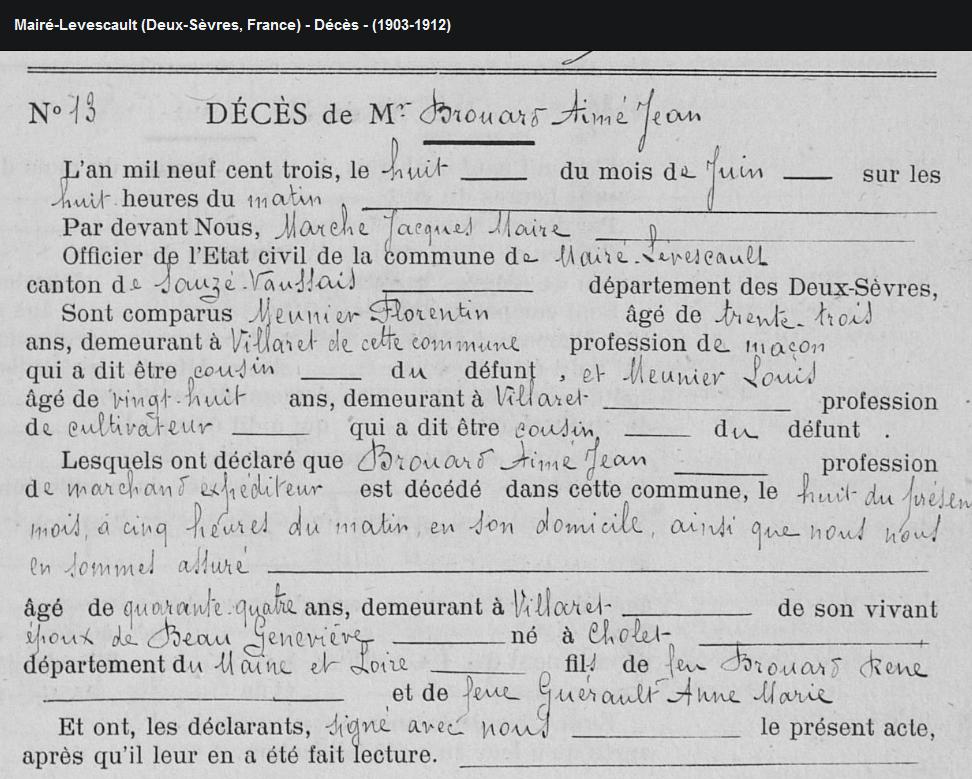 Mairé-Levescault (Deux-Sèvres, France) - Décès - (1903-1912)
N° 13 DÉCÈS de Mr Brouard Aimé Jean
L'an mil neuf cent trois, le huit du mois de Juin sur les
huit heures du matin
Par devant Nous, Marché Jacques Maire
Officier de l'Etat civil de la commune de Mairé-Levescault
canton de Sauzé-Vaussais département des Deux-Sèvres,
Sont comparus Meunier Florentin âgé de trente-trois
ans, demeurant à Villaret de cette commune profession de maçon
qui a dit être cousin du défunt, et Meunier Louis
âgé de vingt-huit ans, demeurant à Villaret profession
de cultivateur qui a dit être cousin du défunt.
Lesquels ont déclaré que Brouard Aimé Jean profession
de marchand expéditeur est décédé dans cette commune, le huit du présen
mois, à cinq heures du matin, en son domicile, ainsi que nous nous
en sommes assuré
âgé de quarante-quatre ans, demeurant à Villaret de son vivant
époux de Beau Geneviève né à Cholet
département du Maine et Loire fils de feu Brouard René
et de feue Guérault Anne Marie
Et ont, les déclarants, signé avec nous le présent acte,
après qu'il leur en a été fait lecture.